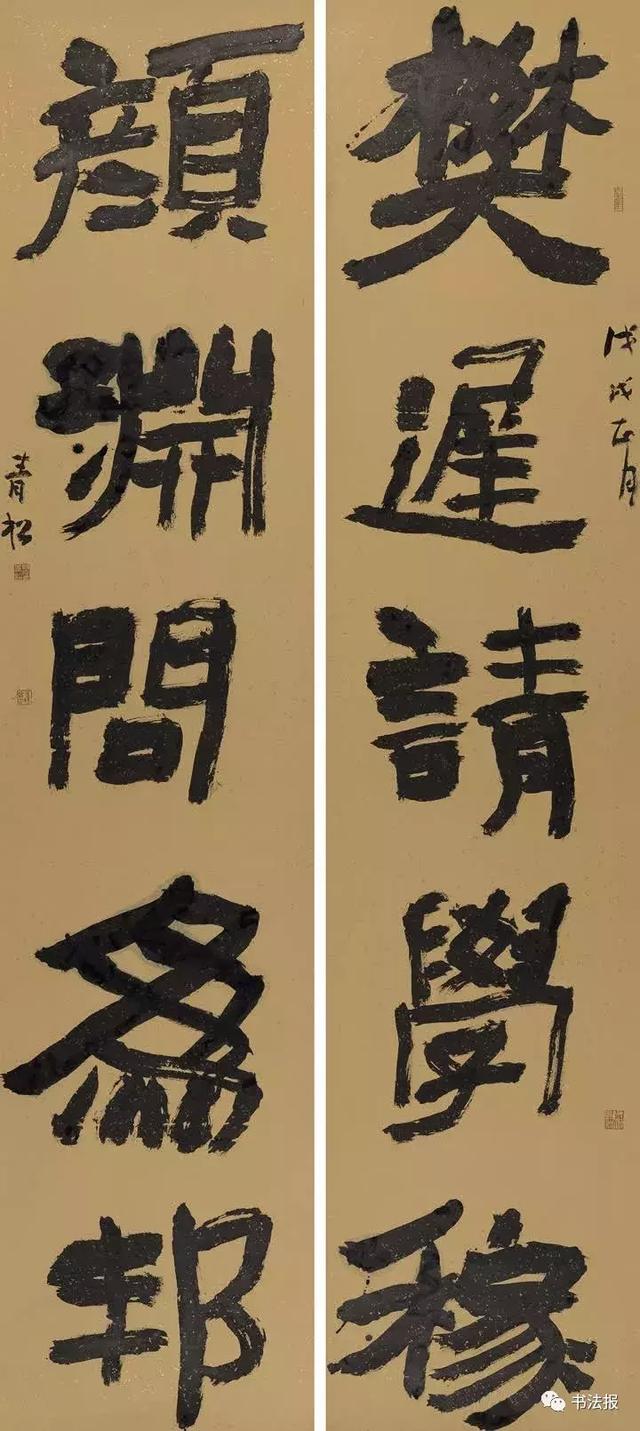 樊遲請學稼
戊戌正月
顏淵問為邦
青松
书法报